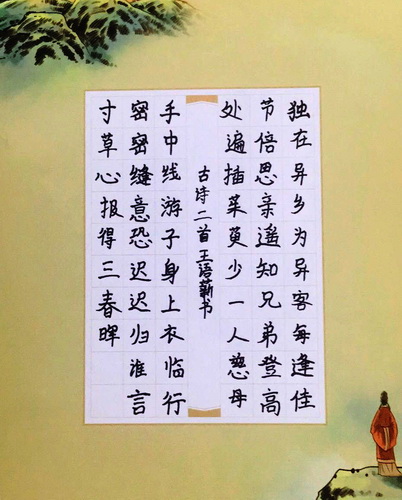 独在异乡为异客每逢佳
节倍思亲遥知兄弟登高
处遍插茱萸少一人慈母
古诗二首王语书
手中线游子身上衣临行
密密缝意恐迟迟归谁言
寸草心报得三春晖